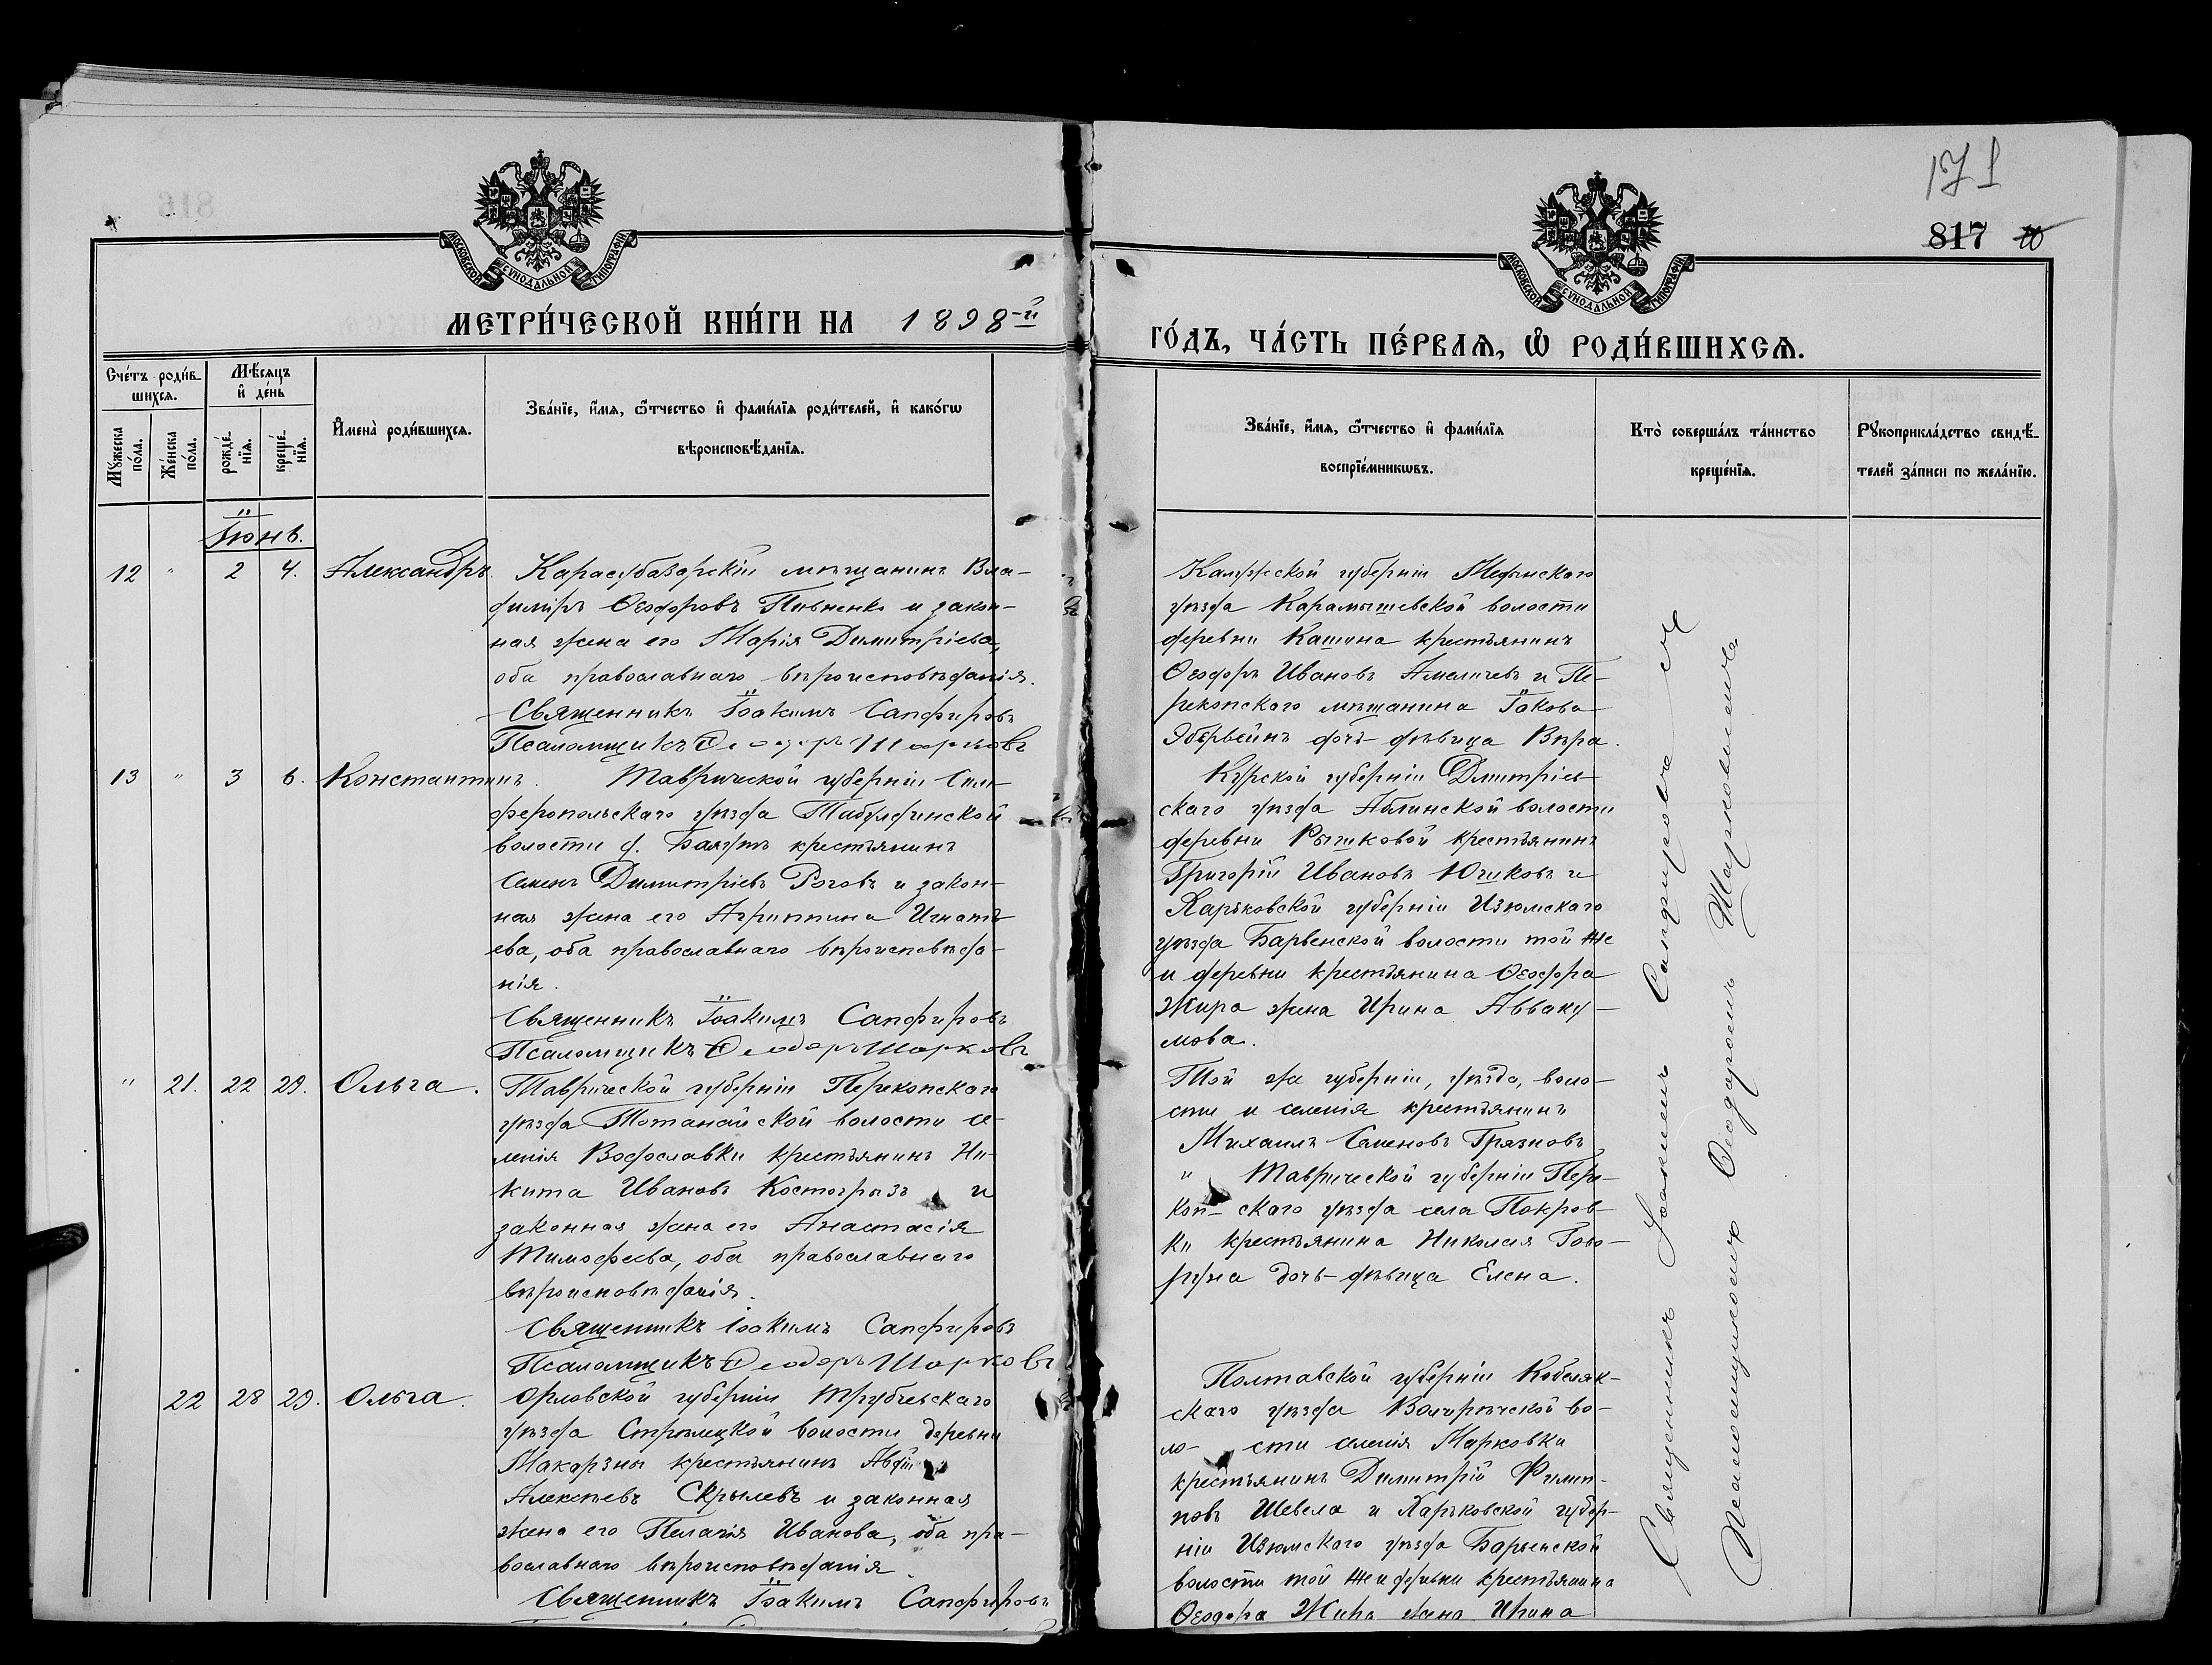 171
817
МОСКОВСКОЙ СУНОДАЛЬНОЙ ТИПОГРАФІИ
МЕТРИ́ЧЕСКОЙ КНИ́ГИ НА 1898-й
Сче́тъ роди́в-
шихся.
Мѣ́сяцъ
и҆ де́нь
Мꙋжеска
по́ла.
Же́нска
по́ла.
рожде́-
нїя.
креще́-
нїя.
И҆мена̀ роди́вшихся.
Зва́нїе, и҆́мя, ѻ҆́тчество и҆ фами́лїя роди́телей, и҆ како́гѡ
вѣроисповѣ́данїя.
Іюнь.
12 " 2 4. Александръ. Карасубазарскій мѣщанинъ Вла-
диміръ Ѳеодоровъ Пивненко и закон-
ная жена его Марія Димитріева,
оба православнаго вѣроисповѣданія.
Священникъ Іоакимъ Сапфировъ
Псаломщикъ Ѳеодоръ Шарковъ
13 " 3 6. Константинъ. Таврической губерніи Сим-
феропольскаго уѣзда Табулдинской
волости д. Баяутъ крестьянинъ
Семенъ Димитріевъ Роговъ и закон-
ная жена его Агриппина Игнать-
ева, оба православнаго вѣроисповѣда-
нія.
Священникъ Іоакимъ Сапфировъ
Псаломщикъ Ѳеодоръ Шарковъ
" 21. 22 29. Ольга. Таврической губерніи Перекопскаго
уѣзда Тотанайской волости се-
ленія Воdославки крестьянинъ Ни-
кита Ивановъ Костогрызъ и
законная жена его Анастасія
Тимофеева, оба православнаго
вѣроисповѣданія.
Священникъ Іоакимъ Сапфировъ
Псаломщикъ Ѳеодоръ Шарковъ
22 28 29. Ольга. Орловской губерніи Трубчевскаго
уѣзда Стрѣлецкой волости деревни
Макарзны крестьянинъ Авдій
Алексѣевъ Скрылевъ и законная
жена его Пелагія Иванова, оба пра-
вославнаго вѣроисповѣданія.
Священникъ Іоакимъ Сапфировъ
МОСКОВСКОЙ СУНОДАЛЬНОЙ ТИПОГРАФІИ
ГО́ДЪ, ЧА́СТЬ ПЕ́РВАЯ, Ѡ҆ РОДИ́ВШИХСЯ.
Зва́нїе, и҆́мя, ѻ҆́тчество и҆ фами́лїя
воспрїе́мникѡвъ.
Кто̀ соверша́лъ та́инство
креще́нїя.
Рꙋкоприкла́дство свидѣ́-
телей за́писи по жела́нїю.
Калужской губерніи Медынскаго
уѣзда Карамышевской волости
деревни Кашина крестьянинъ
Ѳеодоръ Ивановъ Амеличевъ и Пе-
рекопскаго мѣщанина Іакова
дочь-дѣвица Вѣра.
Курской губерніи Дмитріев-
скаго уѣзда волости
деревни Рышковой крестьянинъ
Григорій Ивановъ Юшковъ и
Харьковской губерніи Изюмскаго
уѣзда Барвенской волости той же
и деревни крестьянина Ѳеодора
Жира жена Ирина Авваку-
мова.
Той же губерніи, уѣзда, воло-
сти и селенія крестьянинъ
Михаилъ Семеновъ Грязновъ
" Таврической губерніи Пере-
коп- скаго уѣзда села Покров-
ки крестьянина Николая Гово-
руна дочь-дѣвица Елена.
Полтавской губерніи Кобеляк-
скаго уѣзда во-
ло- сти селенія Марковки
крестьянинъ Димитрій Филип-
повъ Шевела и Харьковской губер-
ніи Изюмскаго уѣзда Барвенской
волости той же и деревни крестьянина
Ѳеодора Жира жена Ирина
Священникъ Іоакимъ Сапфировъ съ
Псаломщикомъ Ѳеодоромъ Шарковымъ